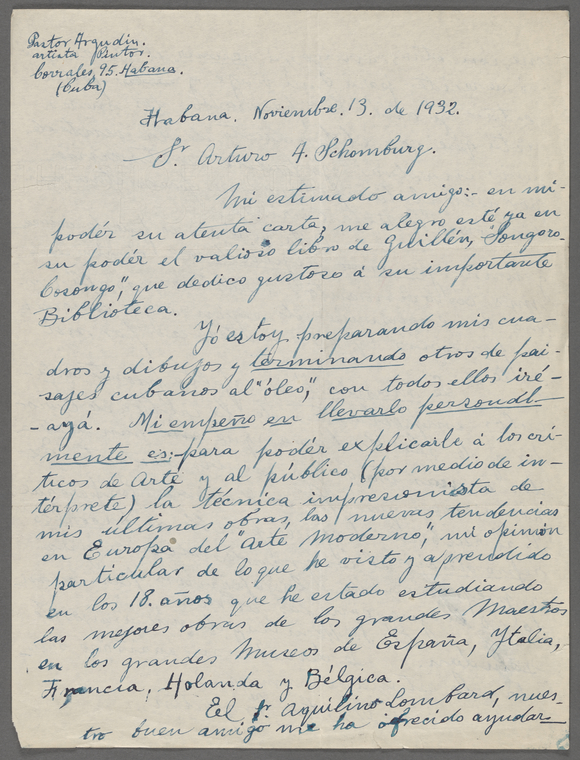 Pastor Argudin.
artista Pintor.
Corrales, 95. Habana.
(Cuba)
Habana. Noviembre. 13. de 1932.
Sr Arturo A. Schomburg.
Mi estimado amigo:- en mi-
podér su atenta carta, me alegro esté ya en
su podér el valioso libro de Guillén, "Songoro-
Cosongo," que dedico gustoso á su importante
Biblioteca.
Yó estoy preparando mis cua-
dros y dibujos y terminando otros de pai-
sajes cubanos al "óleo," con todos ellos iré-
-ayá. Mi empeño en llevarlo personál-
mente es:-para podér explicarle á los crí-
ticos de Arte y al público (por medio de in-
térprete) la técnica impresionista de
mis últimas obras, las nuevas tendencias
en Europa del "Arte Moderno," mi opinión
particular de lo que he visto y aprendido
en los 18. años que he estado estudiando
las mejores obras de los grandes Maestros
en los grandes Museos de España, Ytalia,
Francia, Holanda y Bélgica.
El Sr. Aquilino Lombard, nues-
tro buen amigo me ha ofrecido ayudar